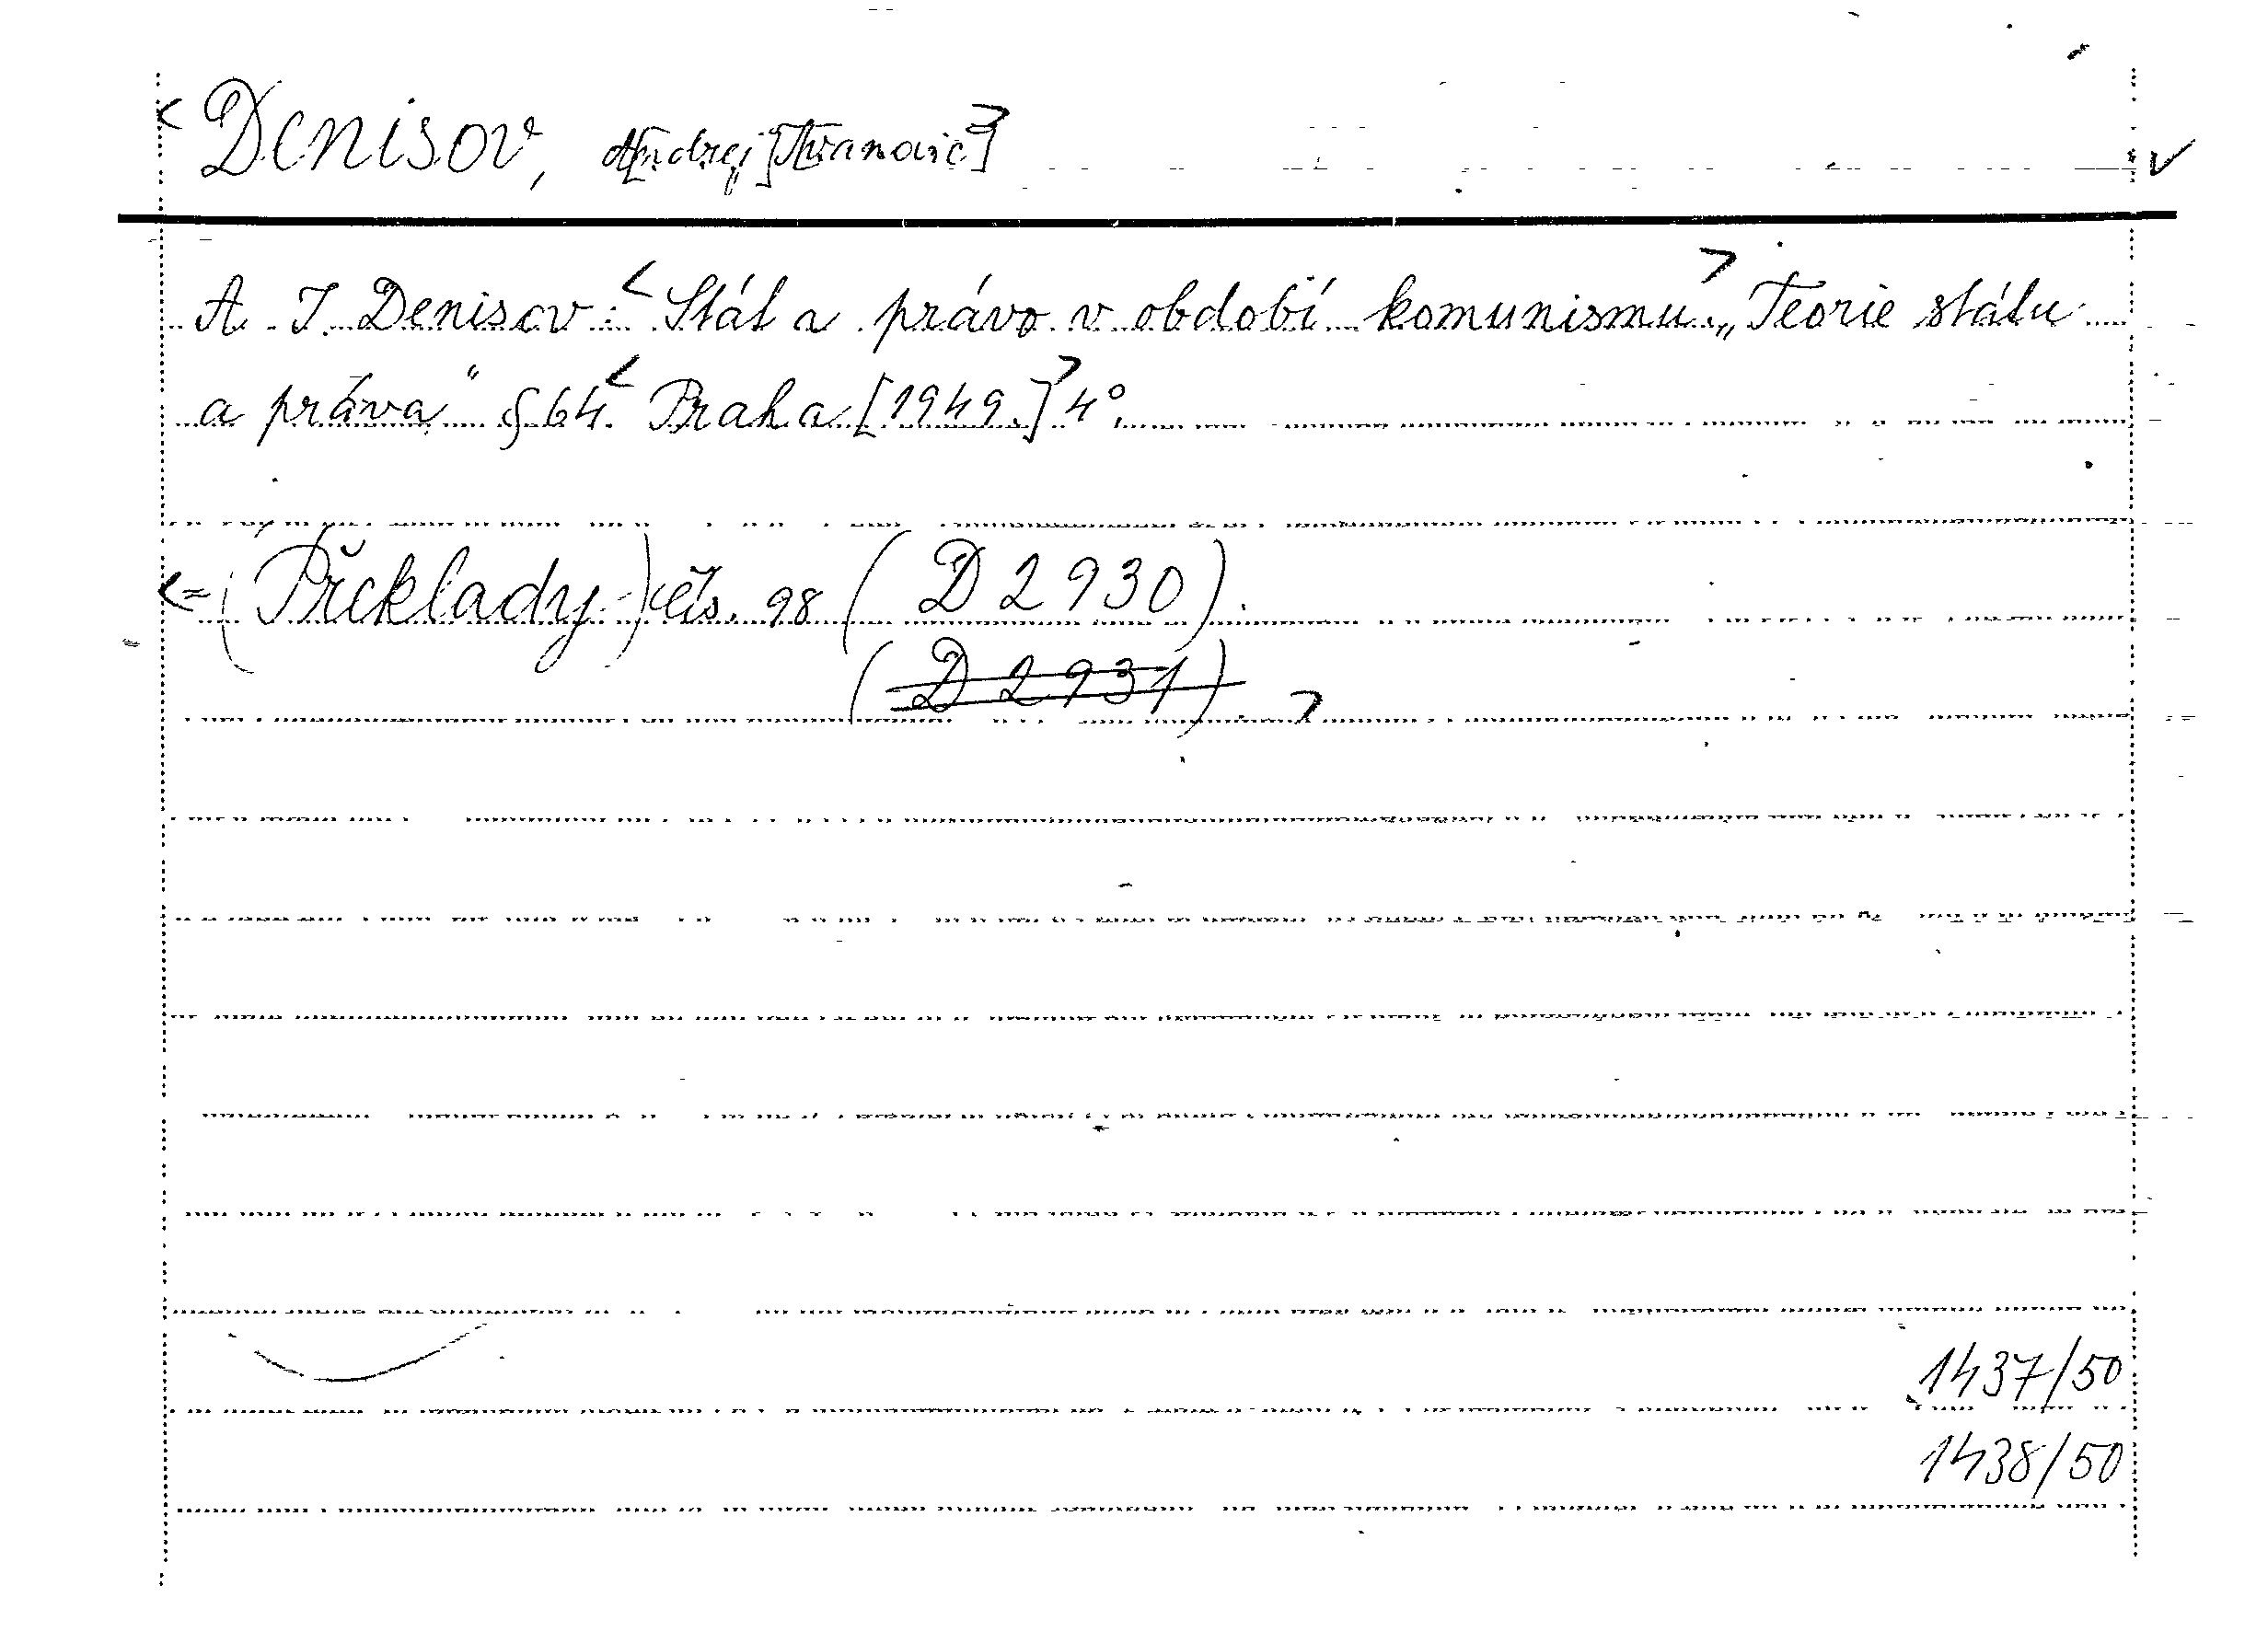 < Denisov, A[ndrej] I[vanovič] >
A. I. Denisov: < Stát a právo v období komunismu. > „Teorie státu
a práva“ § 64. < Praha [1949.] > 4°.
<= (Překlady.-) čís. 98 (D 2930).
(D 2931). >
1437/50
1438/50